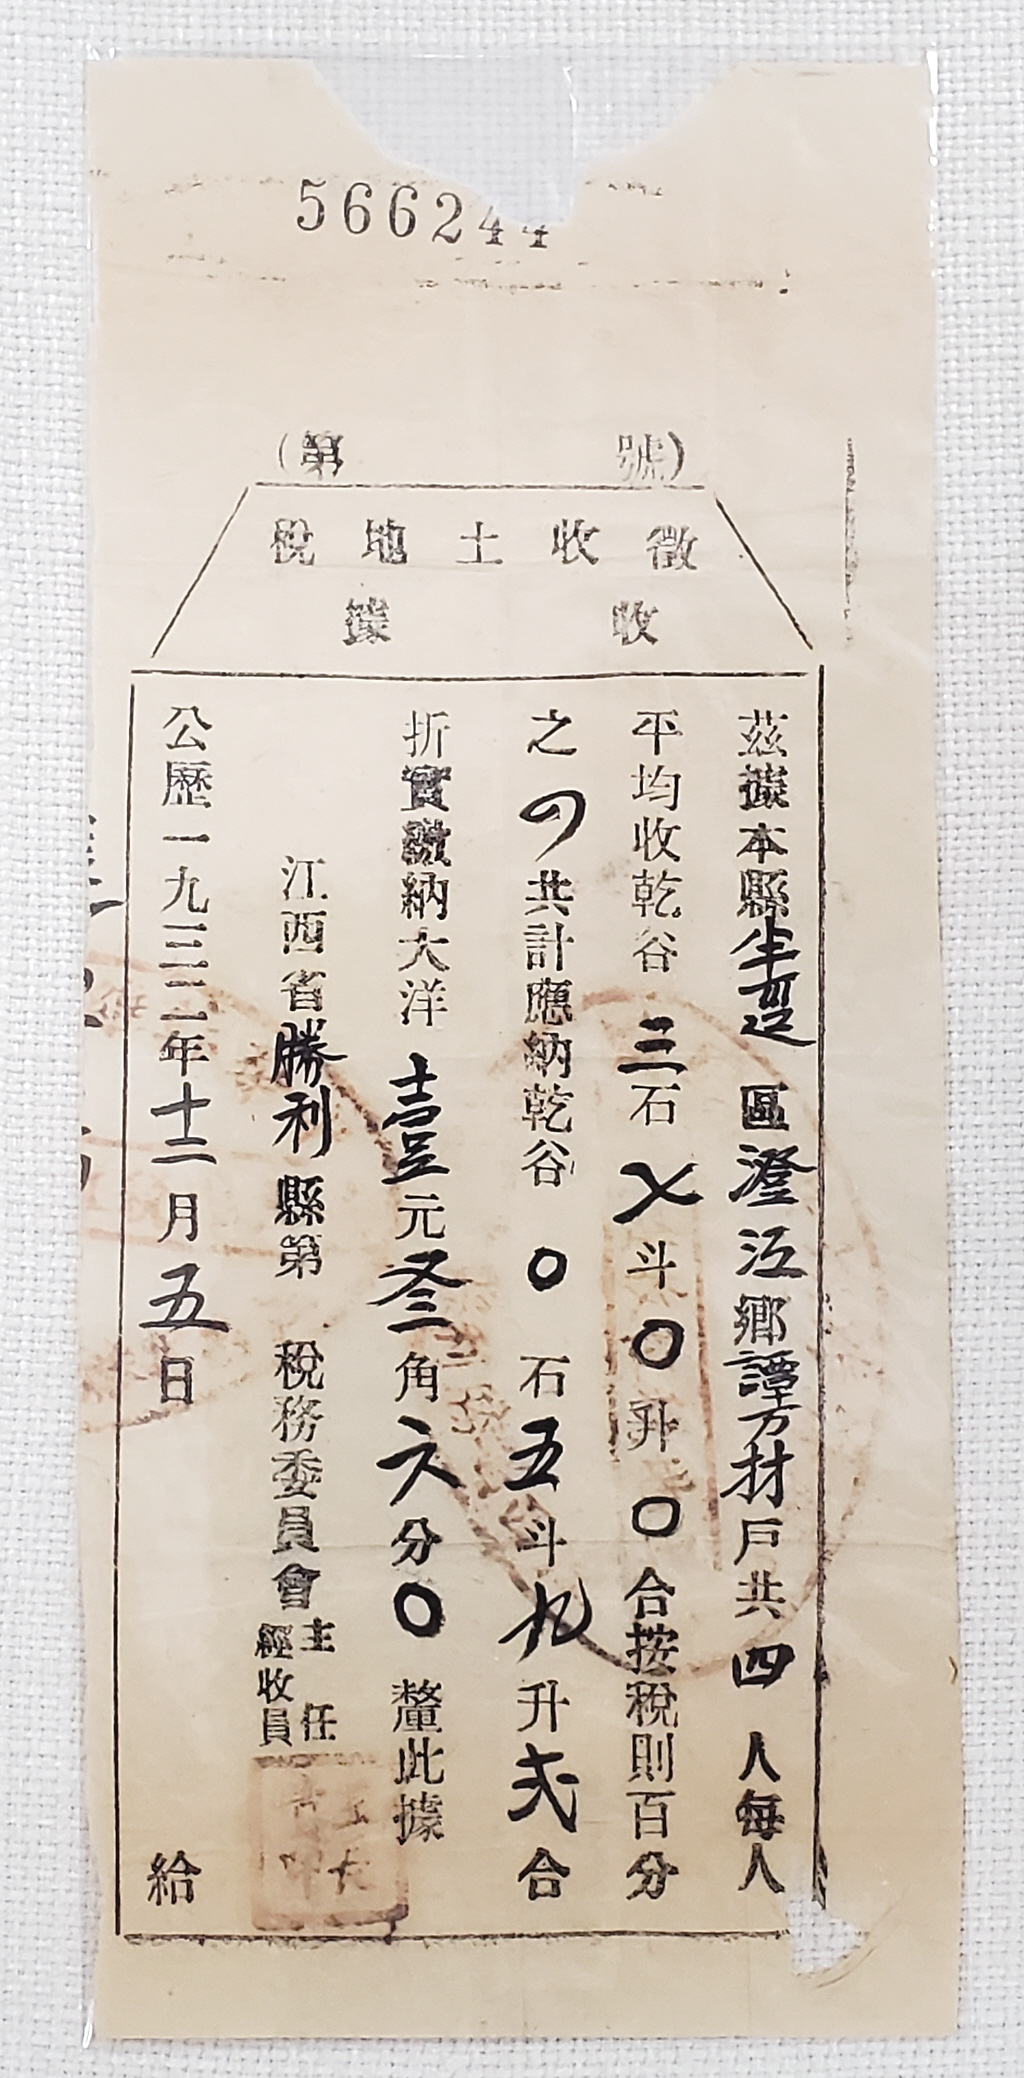 566244
（第　　號）
徵收土地稅
收據
茲據本縣半逕區澄江鄉譚方材戶共四人每人
平均收乾谷三石七斗〇升〇合按稅則百分
之四共計應納乾谷〇石五斗九升弍合
折實繳納大洋壹元叁角六分〇釐此據
江西省勝利縣第　稅務委員會
主任
經收員
公歷一九三二年十二月五日　給